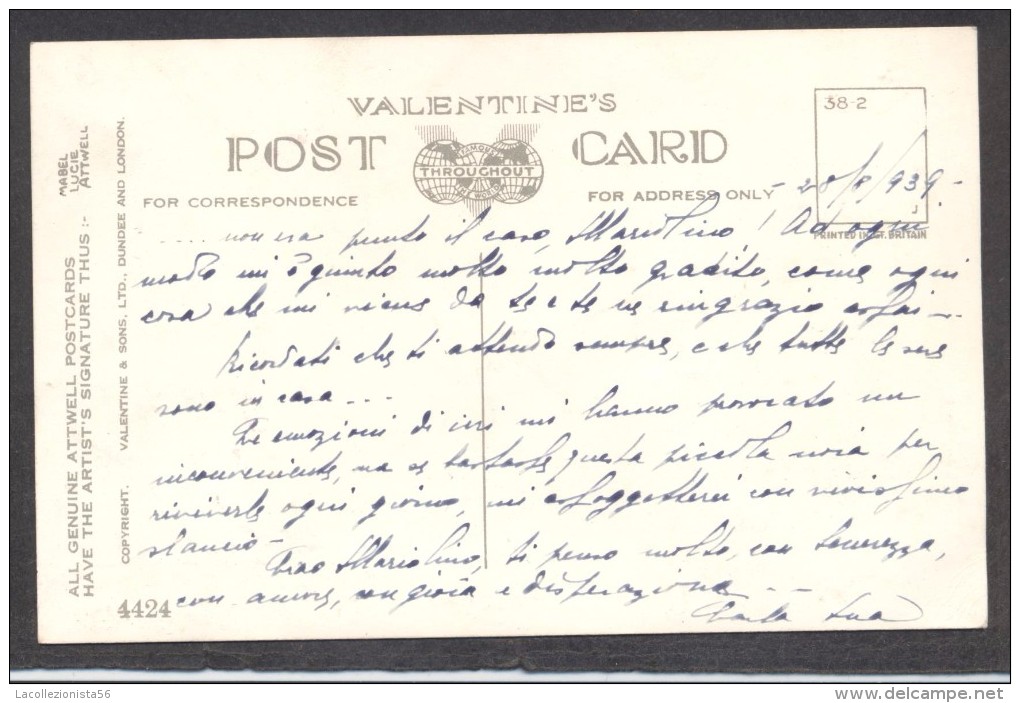 VALENTINE'S
POST CARD
FAMOUS THROUGHOUT THE WORLD
38-2
J
PRINTED IN GT. BRITAIN
FOR CORRESPONDENCE
FOR ADDRESS ONLY
MABEL
LUCIE
ATTWELL
ALL GENUINE ATTWELL POSTCARDS
HAVE THE ARTIST'S SIGNATURE THUS :-
COPYRIGHT. VALENTINE & SONS, LTD., DUNDEE AND LONDON.
4424
- 28/8/939 -
.... non era punto il caso, Mariolino! Ad ogni
modo mi è giunto molto molto gradito, come ogni
cosa che mi viene da te e te ne ringrazio assai...
Ricordati che ti attendo sempre, e che tutte le sere
sono in casa ...
Le emozioni di ieri mi hanno provocato un
inconveniente, ma se bastasse questa piccola noia per
riviverle ogni giorno, mi assoggetterei con vivissimo
slancio -
Ciao Mariolino, ti penso molto, con tenerezza,
con amore, con gioia e disperazione ...
Carla tua
Lacollezionista56
delcampe.net